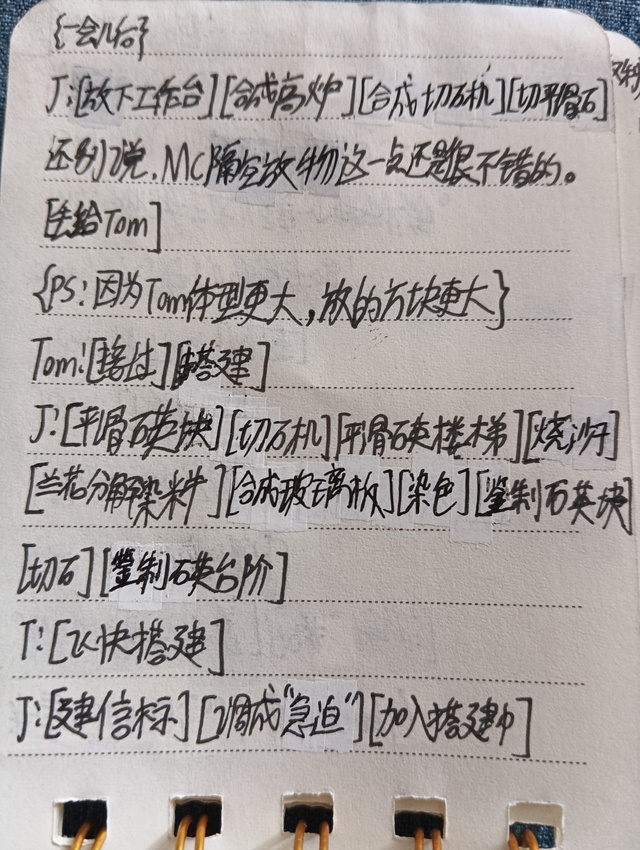 {一会儿后}
J:[放下工作台][合成高炉][合成切石机][切平滑石]
还别说,MC隔空放物这一点还是很不错的。
[丢给Tom]
{PS:因为Tom体型更大,放的方块更大}
Tom:[接过][搭建]
J:[平滑石英块][切石机][平滑石英楼梯][烧沙子]
[兰花分解染料][合成玻璃板][染色][錾制石英块]
[切石][錾制石英台阶]
T:[飞快搭建]
J:[建信标][调成"急迫"][加入搭建中]